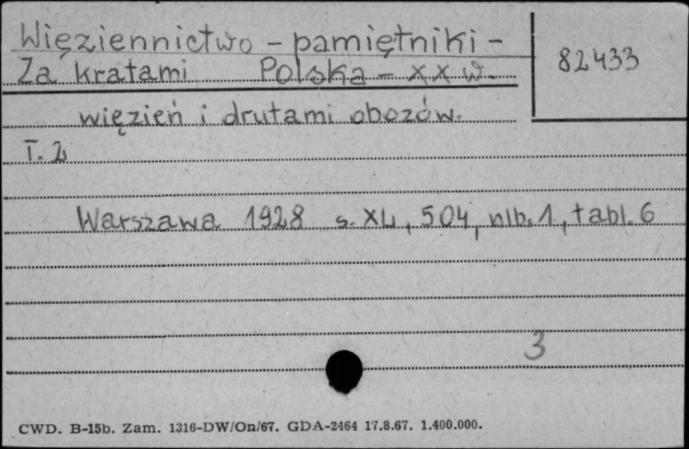 Więziennictwo - pamiętniki -
82433
Za kratami Polska - XX w.
więzień i drutami obozów.
T. 2
Warszawa 1928 s. XL, 504, nlb. 1, tabl. 6
3
CWD. B-15b. Zam. 1316-DW/On/67. GDA-2464 17.8.67. 1.400.000.